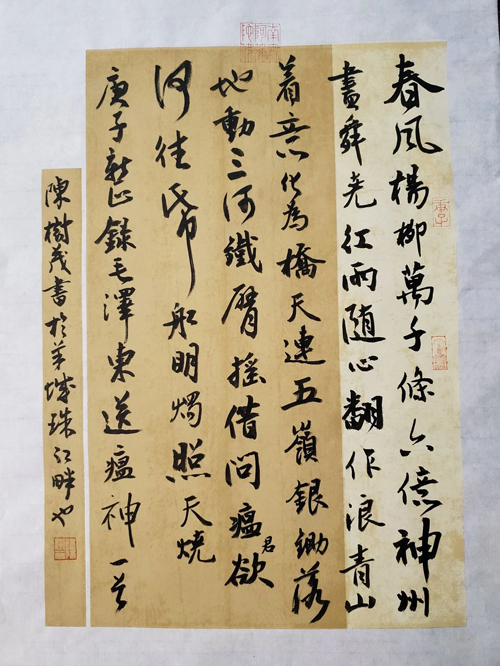 春風楊柳萬千條六億神州
盡舜堯紅雨随心翻作浪青山
着意化為橋天連五嶺銀鋤落
地動三河鐵臂摇借問瘟君欲
何往帋船明燭照天燒
庚子新正錄毛澤東送瘟神一首
陳樹茂書於羊城珠江畔也